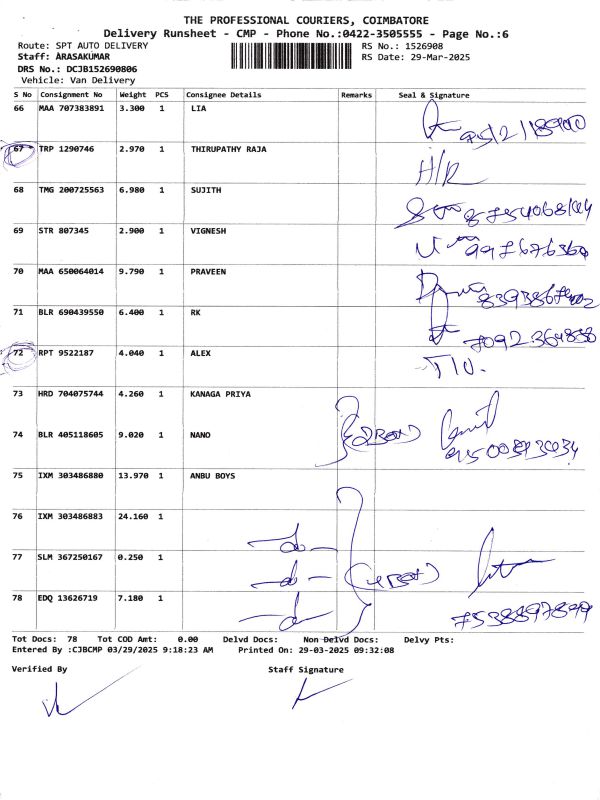 THE PROFESSIONAL COURIERS, COIMBATORE
Delivery Runsheet - CMP - Phone No.:0422-3505555 - Page No.:6
Route: SPT AUTO DELIVERY RS No.: 1526908
Staff: ARASAKUMAR RS Date: 29-Mar-2025
DRS No.: DCJB152690806
Vehicle: Van Delivery
S No Consignment No Weight PCS Consignee Details Remarks Seal & Signature
66 MAA 707383891 3.300 1 LIA
67 TRP 1290746 2.970 1 THIRUPATHY RAJA H/R
68 TMG 200725563 6.980 1 SUJITH
69 STR 807345 2.900 1 VIGNESH
70 MAA 650064014 9.790 1 PRAVEEN
71 BLR 690439550 6.400 1 RK
7092364838
72 RPT 9522187 4.040 1 ALEX
73 HRD 704075744 4.260 1 KANAGA PRIYA
74 BLR 405118605 9.020 1 NANO
75 IXM 303486880 13.970 1 ANBU BOYS
76 IXM 303486883 24.160 1 -do-
77 SLM 367250167 0.250 1 -do-
78 EDQ 13626719 7.180 1 -do-
7538897899
Tot Docs: 78 Tot COD Amt: 0.00 Delvd Docs: Non Delvd Docs: Delvy Pts:
Entered By :CJBCMP 03/29/2025 9:18:23 AM Printed On: 29-03-2025 09:32:08
Verified By Staff Signature